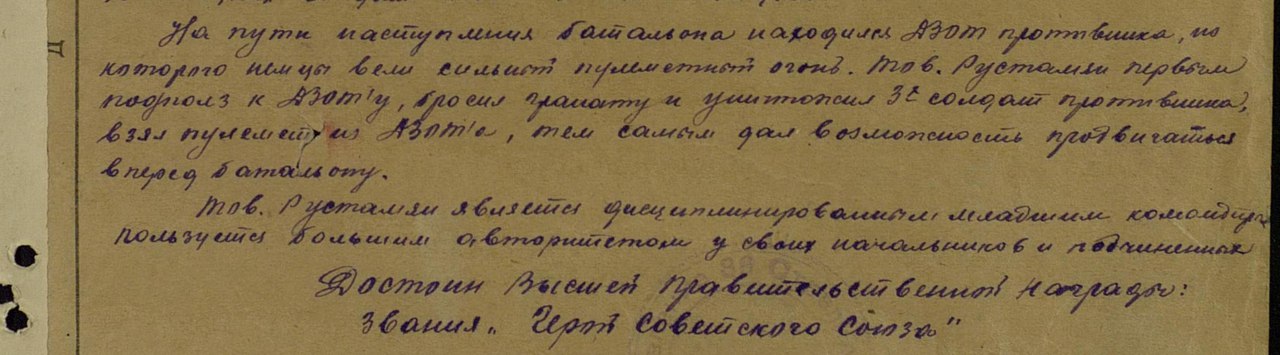 На пути наступления батальона находился ДЗОТ противника, из
которого немцы вели сильный пулеметный огонь. Тов. Рустамян первым
подполз к ДЗОТ'у, бросил гранату и уничтожил 3х солдат противника,
взял пулемет из ДЗОТ'а, тем самым дал возможность продвигаться
вперед батальону.
Тов. Рустамян является дисциплинированным младшим командиром
пользуется большим авторитетом у своих начальников и подчиненных
Достоин Высшей Правительственной Награды:
Звания „Герой Советского Союза"